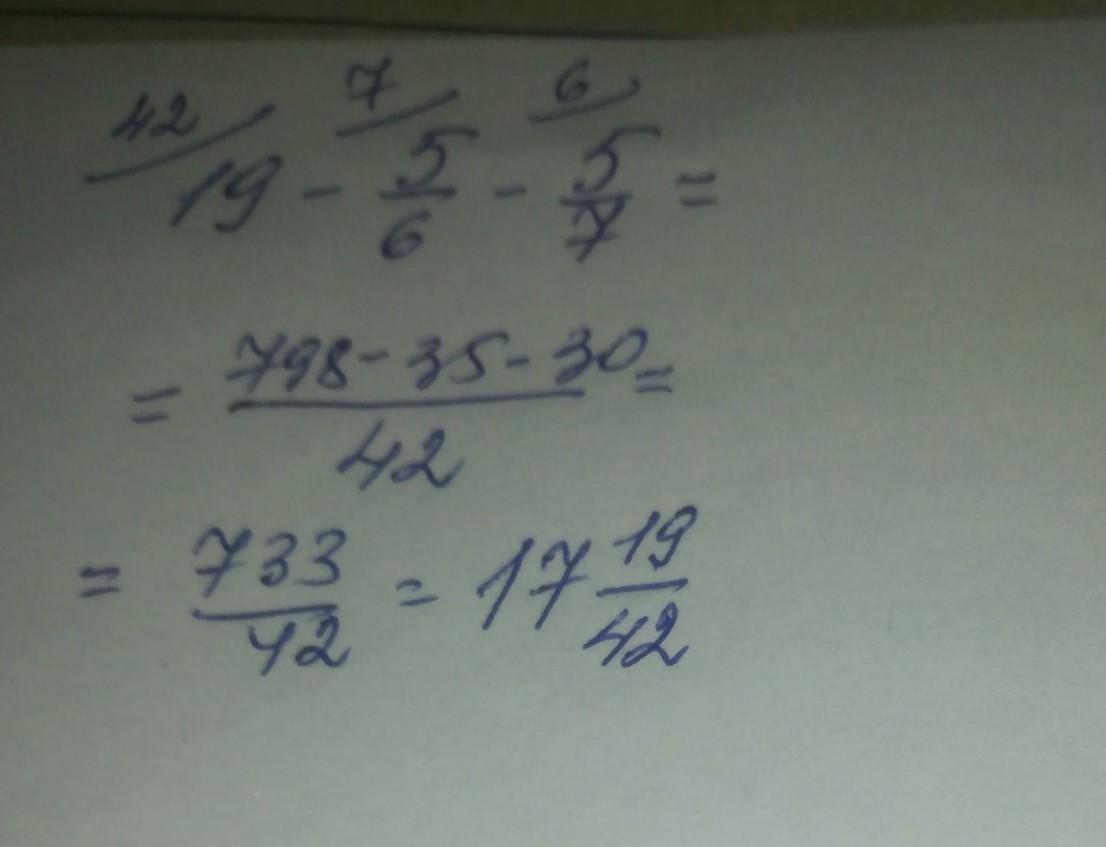 42 7 6
19 - 5/6 - 5/7 =
= 798 - 35 - 30 / 42 =
= 733/42 = 17 19/42